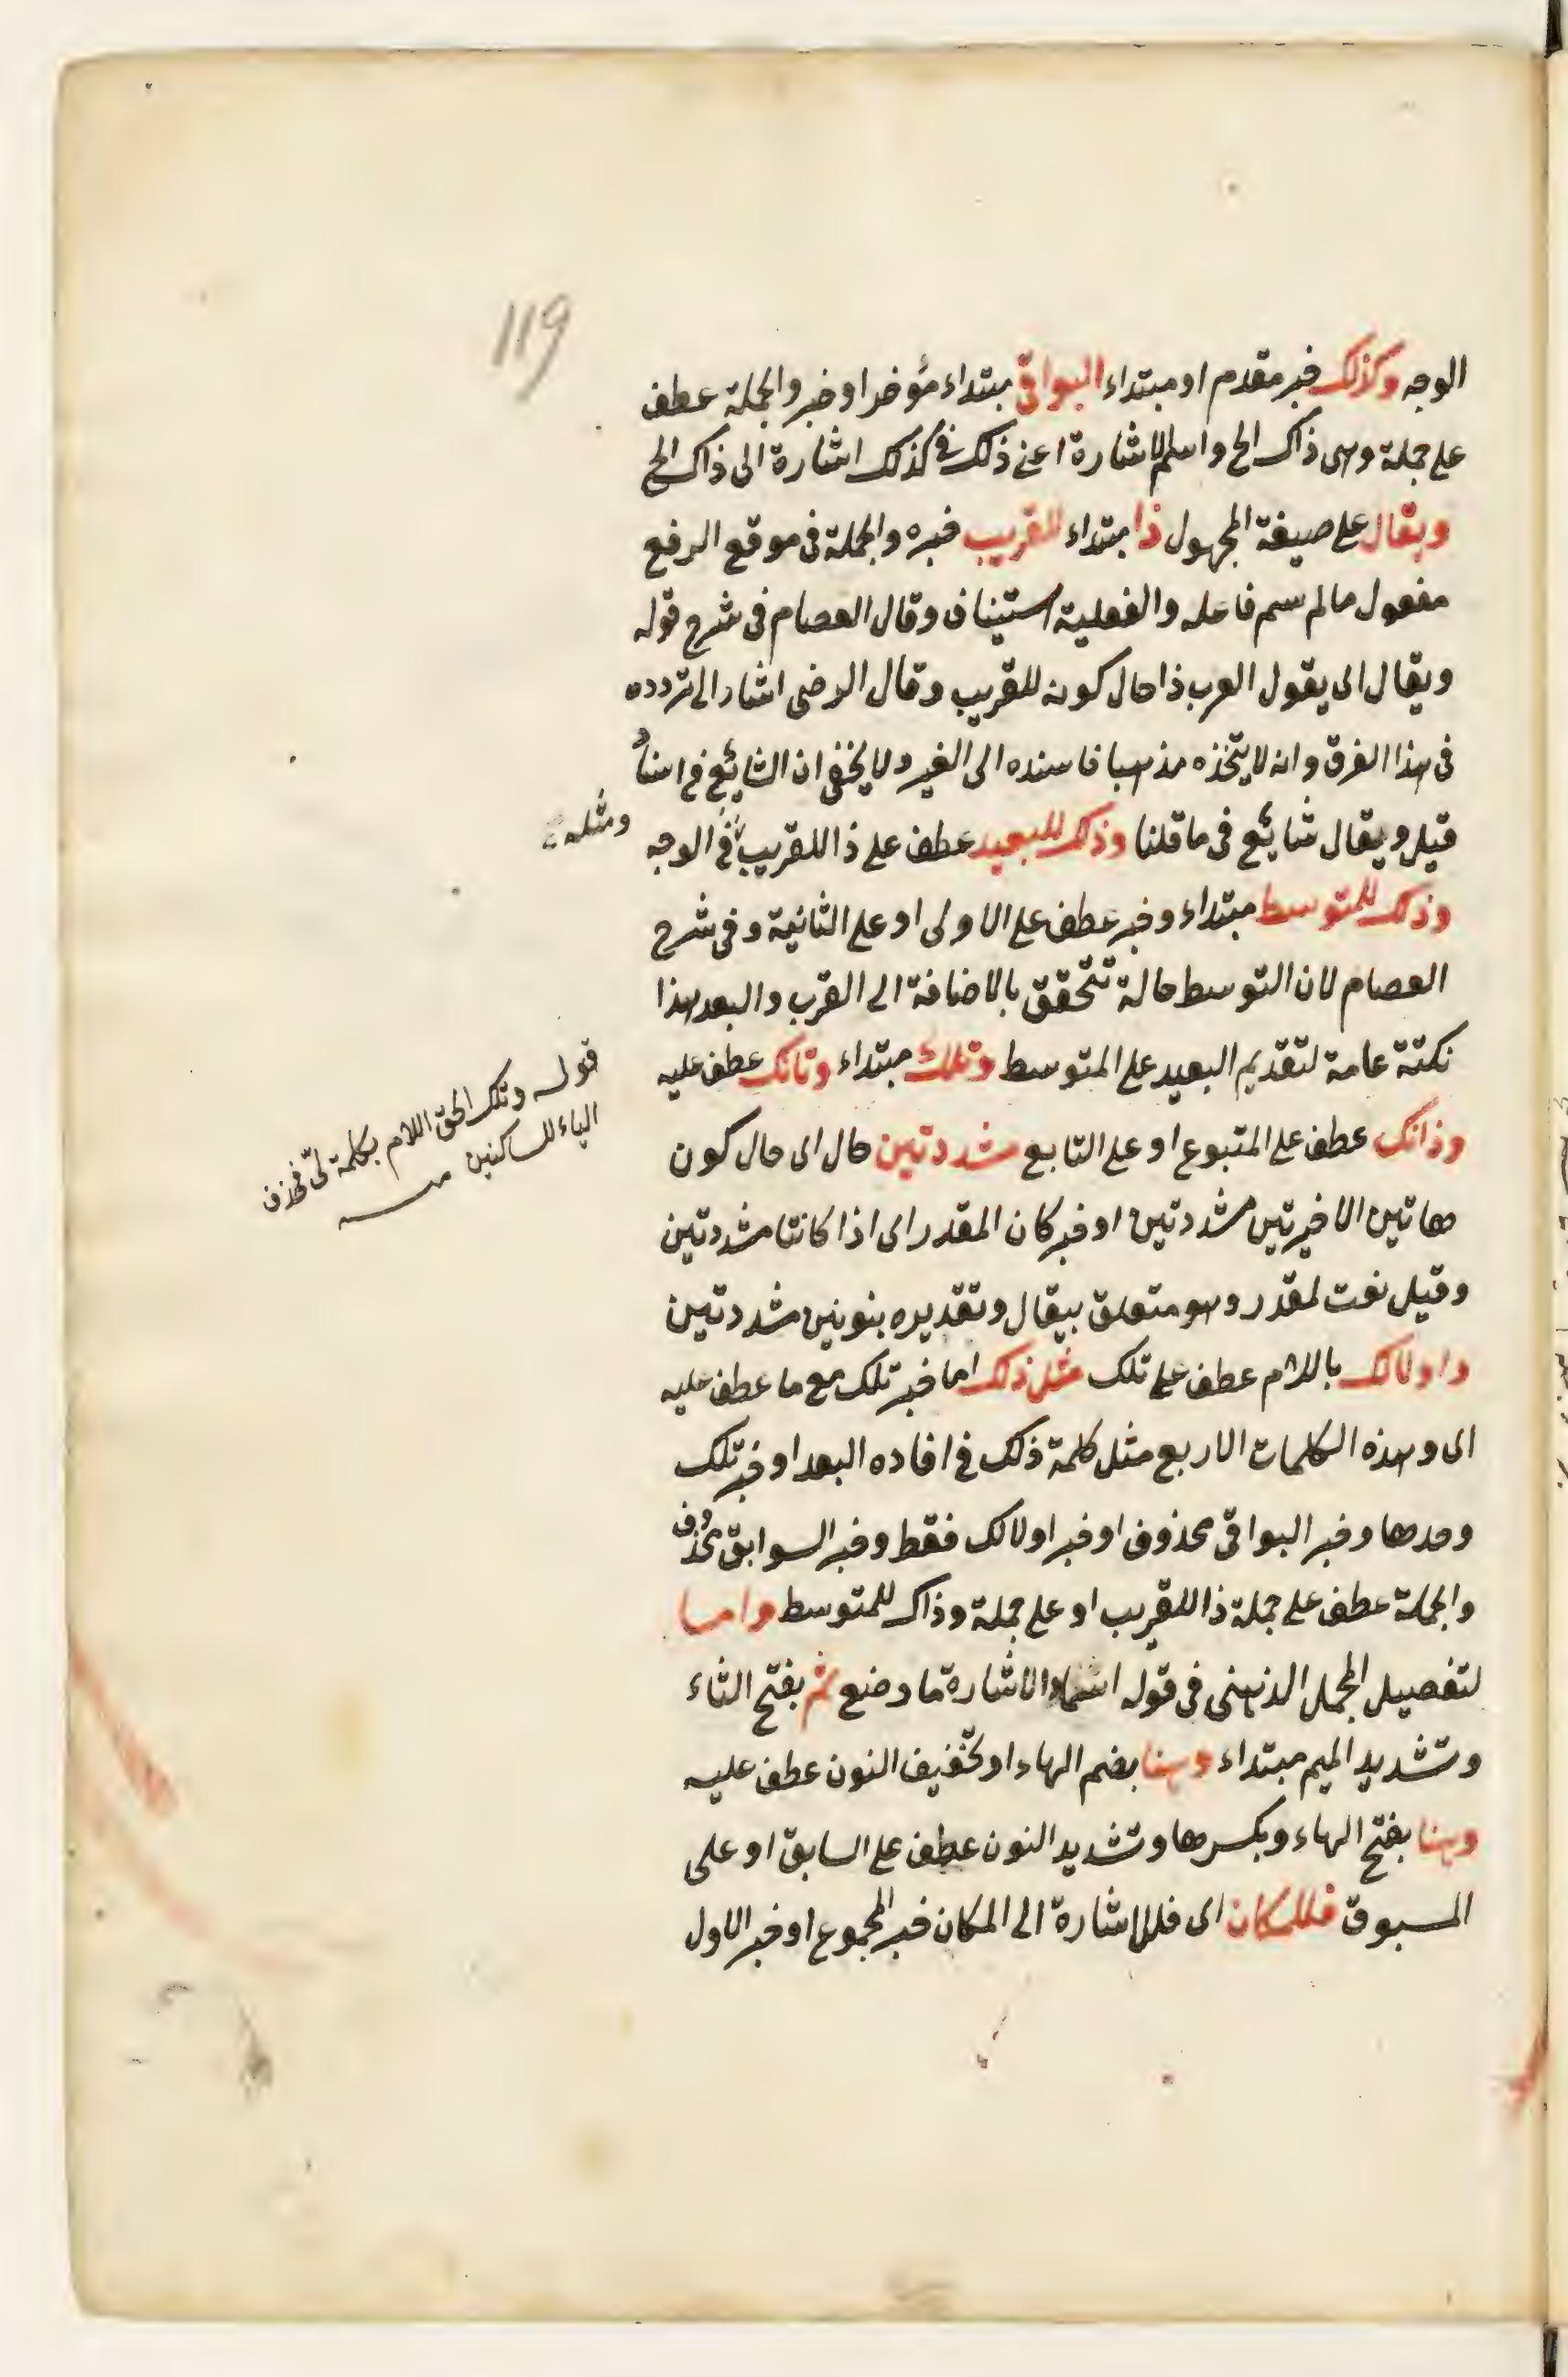 119
الوجه وكذلك خبر مقدم او مبتداء البواقى مبتداء مؤخر او خبر والجملة عطف
على جملة وهى ذاك الخ واسم الاشارة اعنى ذلك فى كذلك اشارة الى ذاك الخ
ويقال على صيغة المجهول ذا مبتداء للقريب خبره والجملة فى موقع الرفع
مفعول مالم يسم فاعله والفعلية استيناف وقال العصام فى شرح قوله
ويقال اى يقول العرب ذا حال كونه للقريب وقال الرضى اشار الى تردده
فى هذا الفرق وانه لا يتخذه مذهبا فاسنده الى الغير ولا يخفى ان الشايع فى اسناد
قيل ويقال شايع فى ما قلنا وذلك للبعيد عطف على ذا للقريب فى الوجه
ومثله
وذاك للمتوسط مبتداء وخبر عطف على الاولى او على الثانية وفى شرح
العصام لان التوسط حالة تتحقق بالاضافة الى القرب والبعد هذا
نكتة عامة لتقديم البعيد على المتوسط وتلك مبتداء وتانك عطف عليه
قوله وتلك الحق اللام بكلمة تى فحذف
الياء للساكنين منه
وذانك عطف على المتبوع او على التابع مشددتين حال اى حال كون
هاتين الاخيرتين مشددتين او خبر كان المقدر اى اذا كانتا مشددتين
وقيل نعت لمقدر وهو متعلق بيقال وتقديره بنونين مشددتين
واولالك باللام عطف على تلك مثل ذلك اما خبر تلك مع ما عطف عليه
اى وهذه الكلمات الاربع مثل كلمة ذلك فى افاده البعد او خبر تلك
وحدها وخبر البواقى محذوف او خبر اولالك فقط وخبر السوابق محذوف
والجملة عطف على جملة ذا للقريب او على جملة وذاك للمتوسط واما
لتفصيل المجمل الذهنى فى قوله اسماء الاشارة ما وضع ثم بفتح الثاء
وتشديد الميم مبتداء وهنا بضم الهاء او تخفيف النون عطف عليه
وهنا بفتح الهاء وبكسرها وتشديد النون عطف على السابق او على
المسبوق فللمكان اى فللاشارة الى المكان خبر المجموع او خبر الاول